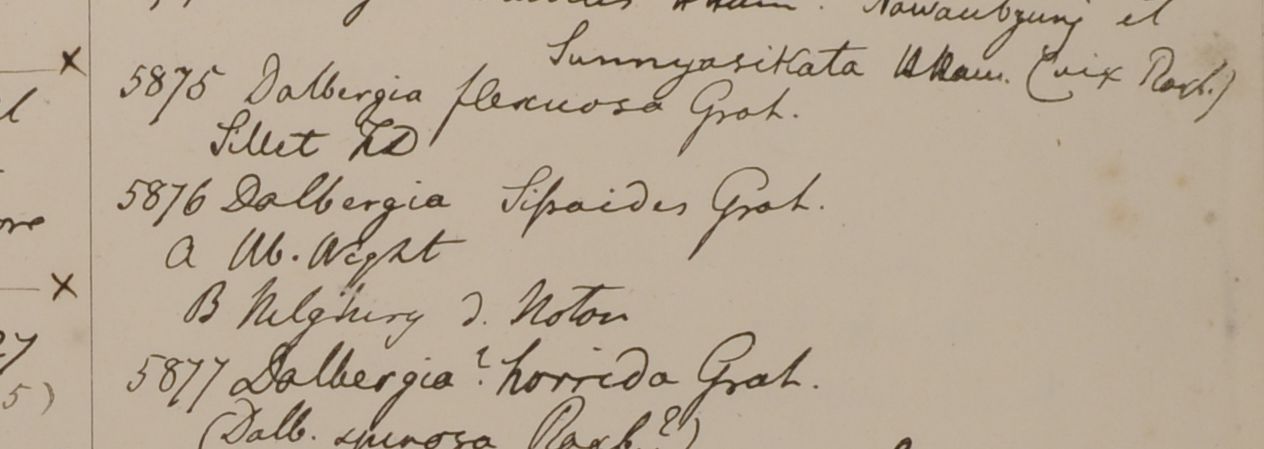 Nawaubgunj et
Sunnyasikata HHam. (vix Roxb.)
5875 Dalbergia flexuosa Grah.
Sillet FD
5876 Dalbergia Sissoides Grah.
a Hb. Wight
B Nelghery D. Noton
5877 Dalbergia? horrida Grah.
(Dalb. spinosa Roxb?)